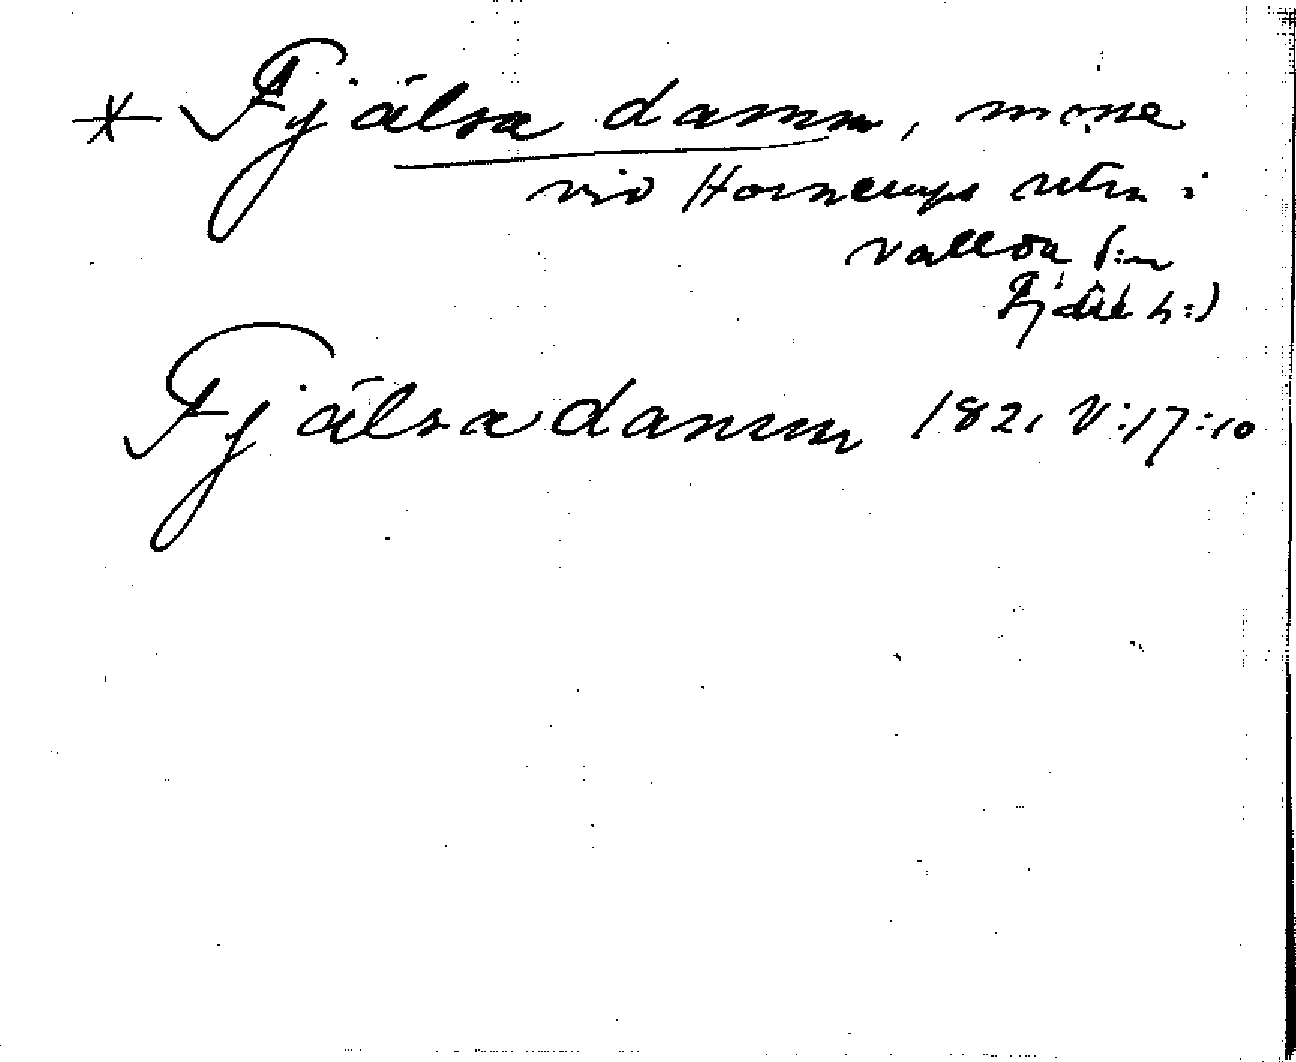 * Fjälsa damm, mosse
vid Hornerups utm i
Valleda s:n
Fjälk h:d
Fjälsa damm 1821 V:17:10